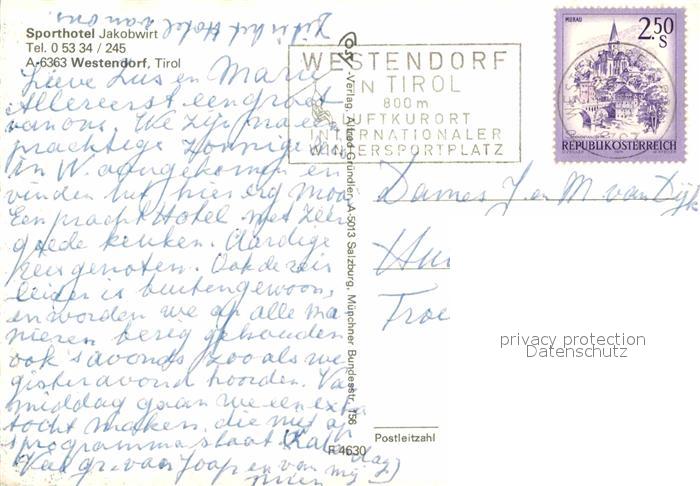 Sporthotel Jakobwirt
Tel. 0 53 34 / 245
A-6363 Westendorf, Tirol
Dit is het Hotel van ons.
Lieve Lus en Marie
Allereerst een groet
van ons. We zijn na een
prachtige zonnige
in W aangekomen en
vinden het hier erg mooi
Een pracht Hotel met zeer
goede keuken. Aardige
reisgenoten. Ook de reis
leider is buitengewoon,
en worden we op alle ma
nieren bezig gehouden
ook 's avonds zooals we
gisteravond hoorden. Va
middag gaan we een extra
tocht maken, die niet op
programma staat
Veel gr. van Joop en van mij
WESTENDORF
IN TIROL
800m
LUFTKURORT
INTERNATIONALER
WINTERSPORTPLATZ
MURAU
2.50
S
REPUBLIK ÖSTERREICH
-Verlag, Alfred Gründler, A-5013 Salzburg, Münchner Bundesstr. 156
R 4630
Dames J. en M. van Dijk
privacy protection
Datenschutz
Postleitzahl